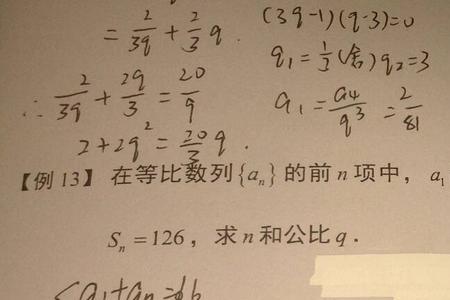 = 2/3q + 2/3 q.
(3q-1)(q-3)=0
q₁ = 1/3 (舍) q₂ = 3
∴ 2/3q + 2q/3 = 20/9
a₁ = a₄/q³ = 2/81
2+2q² = 20/3 q.
【例13】 在等比数列{aₙ}的前n项中，a₁
Sₙ =126，求n和公比q．
a₁+aₙ=